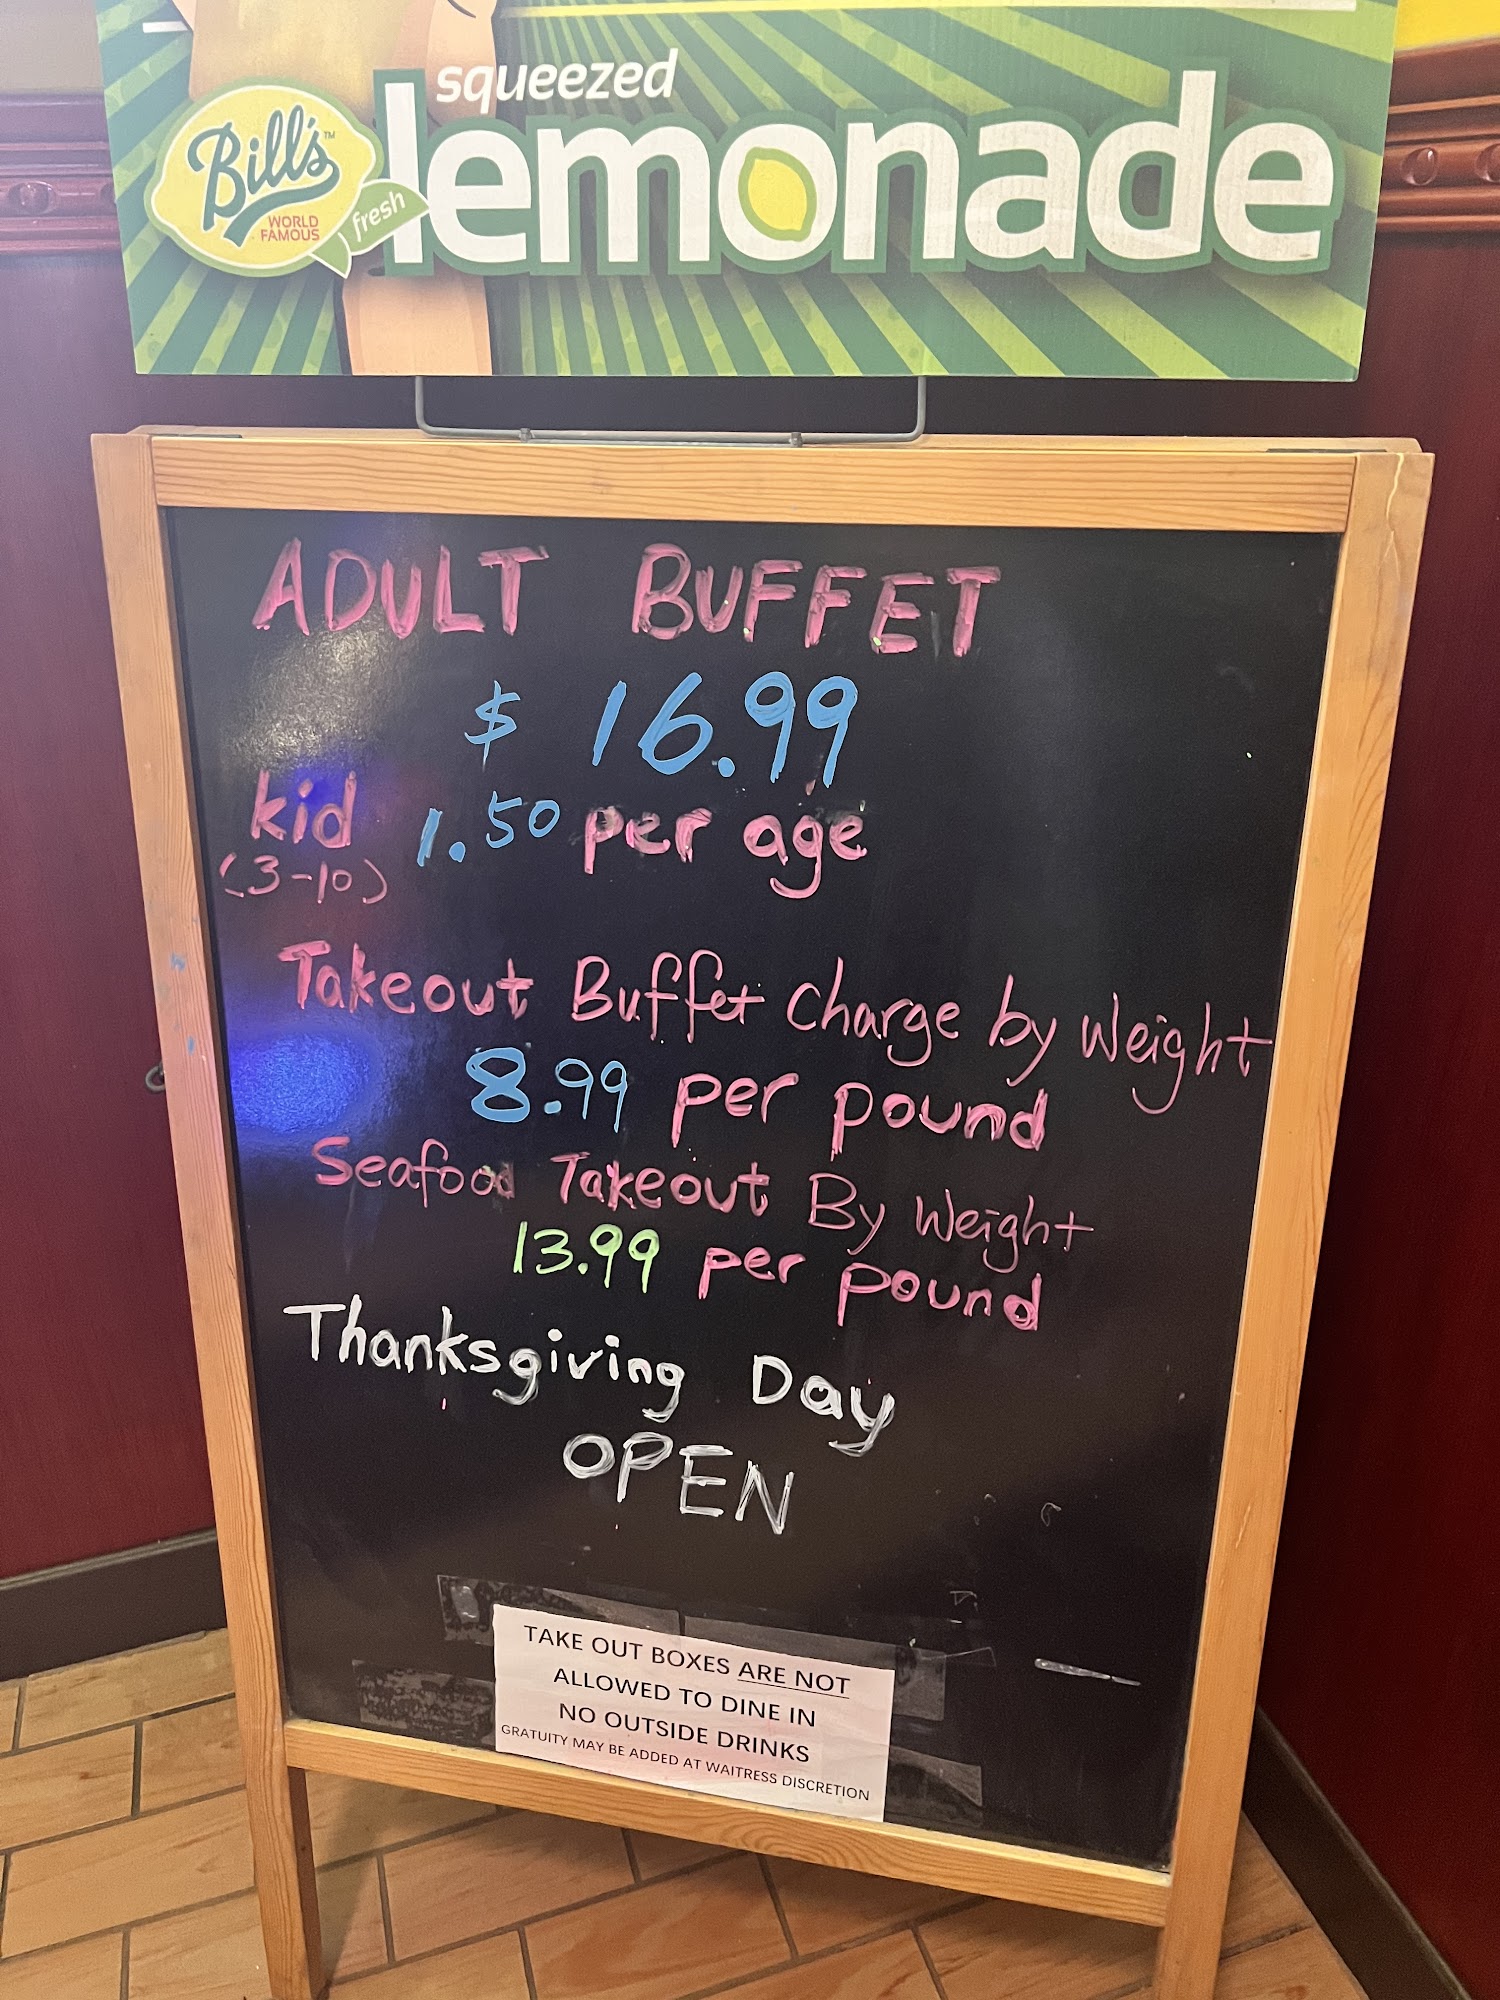 squeezed
Bill's™
WORLD
FAMOUS
fresh
lemonade
ADULT BUFFET
$ 16.99
kid 1.50 per age
(3-10)
Takeout Buffet charge by weight
8.99 per pound
Seafood Takeout By Weight
13.99 per pound
Thanksgiving Day
OPEN
TAKE OUT BOXES ARE NOT
ALLOWED TO DINE IN
NO OUTSIDE DRINKS
GRATUITY MAY BE ADDED AT WAITRESS DISCRETION